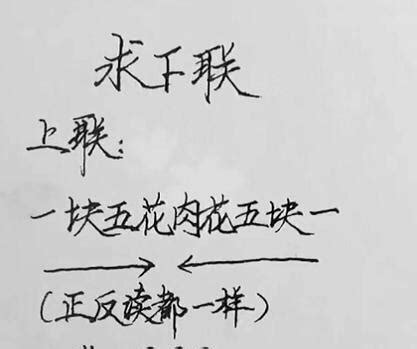 求下联
上联:
一块五花肉花五块一
(正反读都一样)